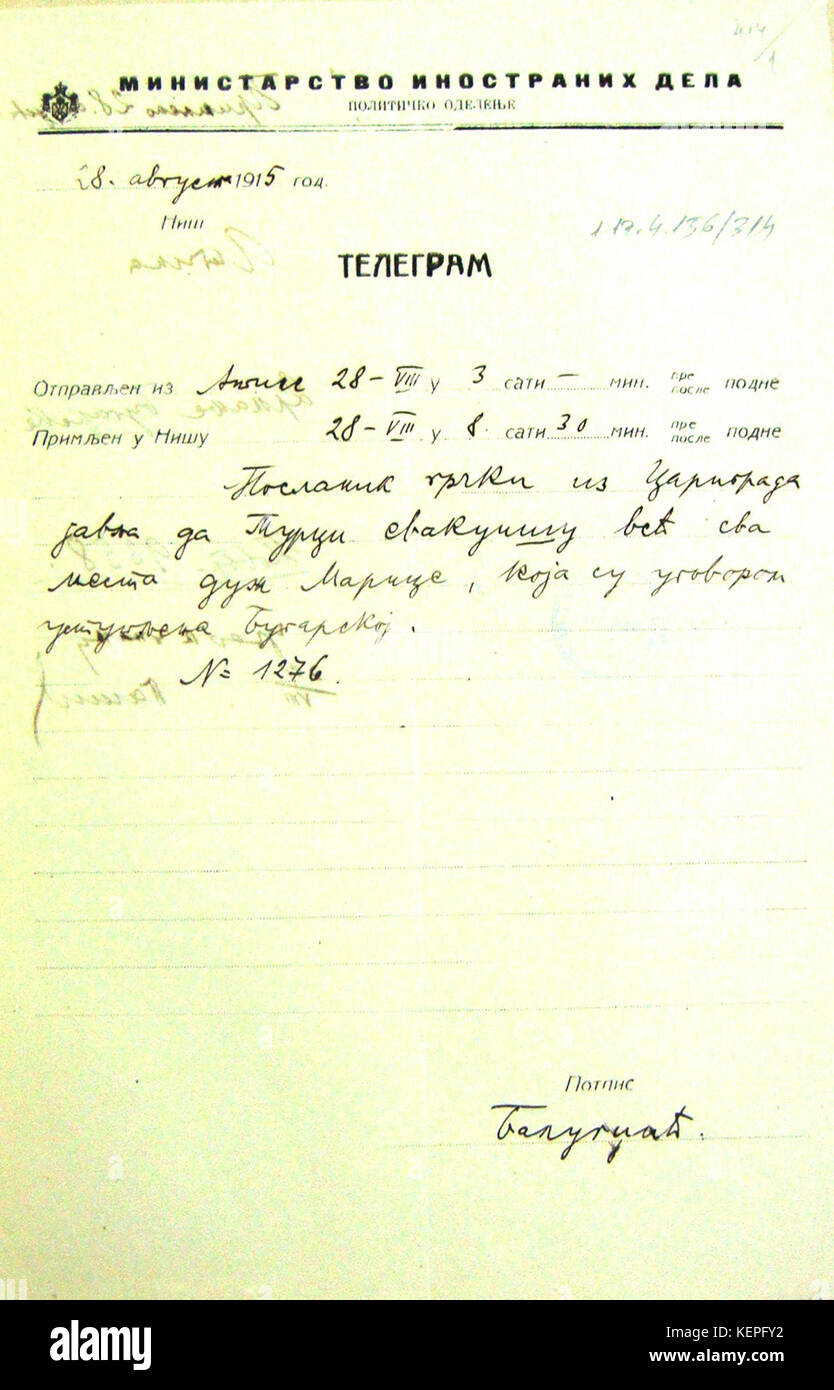 МИНИСТАРСТВО ИНОСТРАНИХ ДЕЛА
ПОЛИТИЧКО ОДЕЛЕЊЕ
28. август 1915 год.
Ниш
1 17.4.136/314
ТЕЛЕГРАМ
Отправљен из Атине 28-VIII у 3 сати — мин. пре после подне
Примљен у Нишу 28-VIII у 8. сати 30 мин. пре после подне
Посланик грчки из Цариграда
јавља да Турци евакуишу већ сва
места дуж Марице, која су уговором
уступљена Бугарској.
№ 1276.
Потпис
Балугџић.
alamy
Image ID: KEPFY2
www.alamy.com